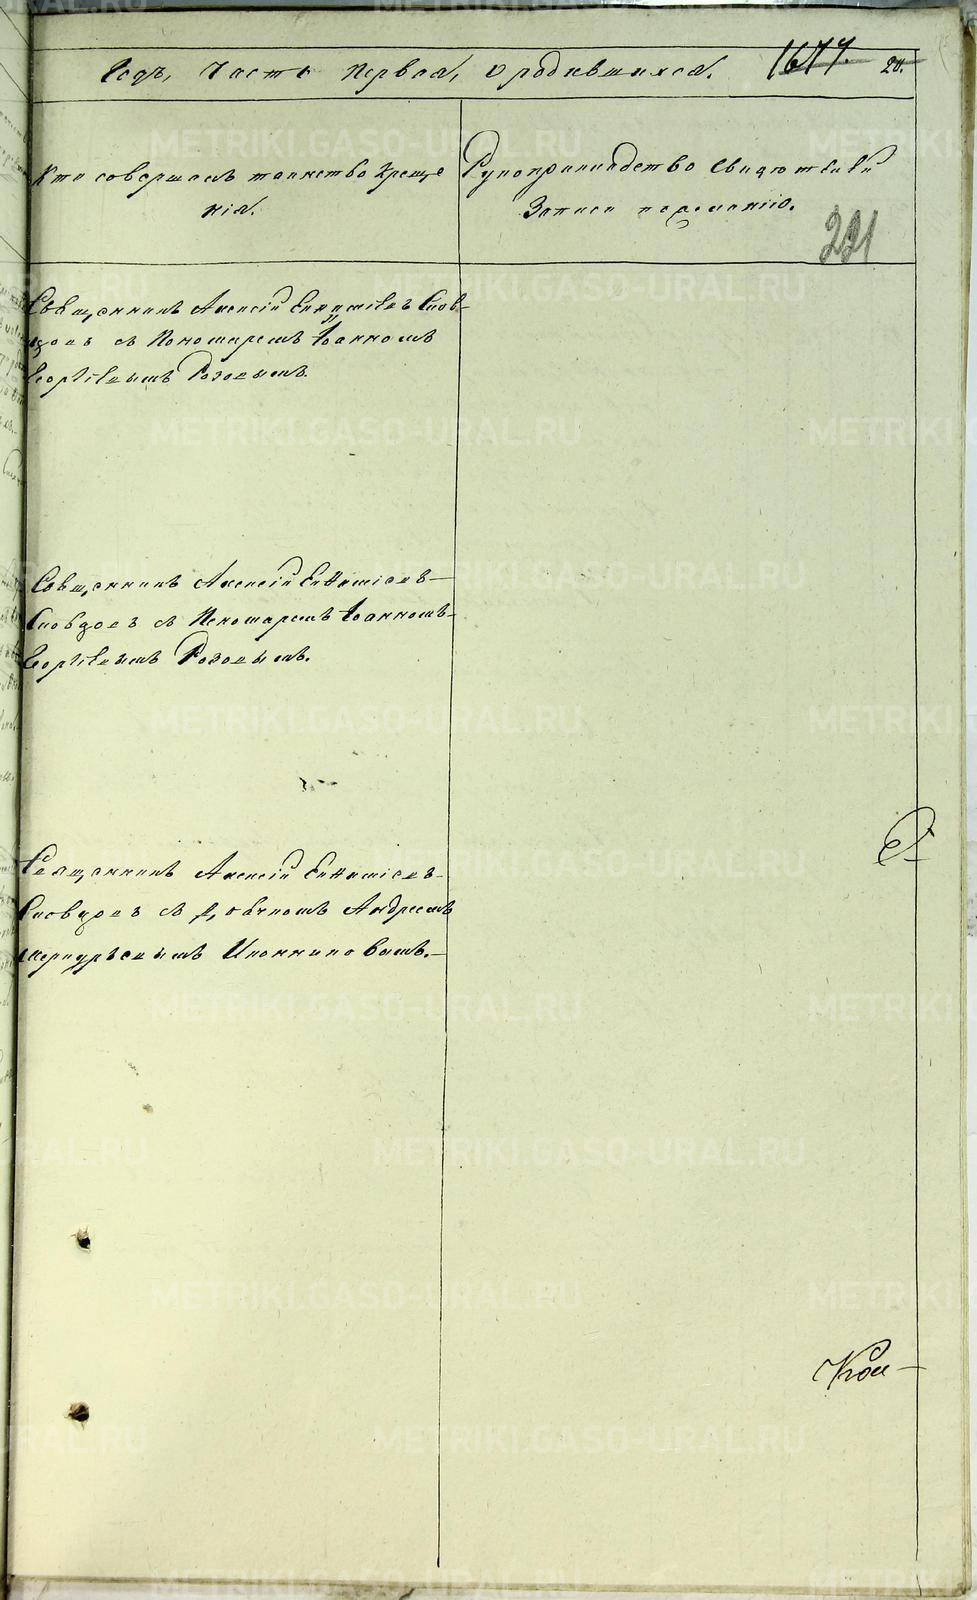 Годъ, Часть первая, о родившихся. 1677. 20.
Кто совершалъ таинство креще
нія.
Рукоприкладство свидѣтелей
записи по желанію.
221
Священникъ Алексій Евфиміевъ Слов-
цовъ съ Пономаремъ Іоанномъ
Георгіевымъ Розовымъ.
Священникъ Алексій Евфиміевъ
Словцовъ съ Пономаремъ Іоанномъ
Георгіевымъ Розовымъ.
Священникъ Алексій Евфиміевъ
Словцовъ съ Дьячкомъ Андреемъ
Иконниковымъ.
METRIKI.GASO-URAL.RU